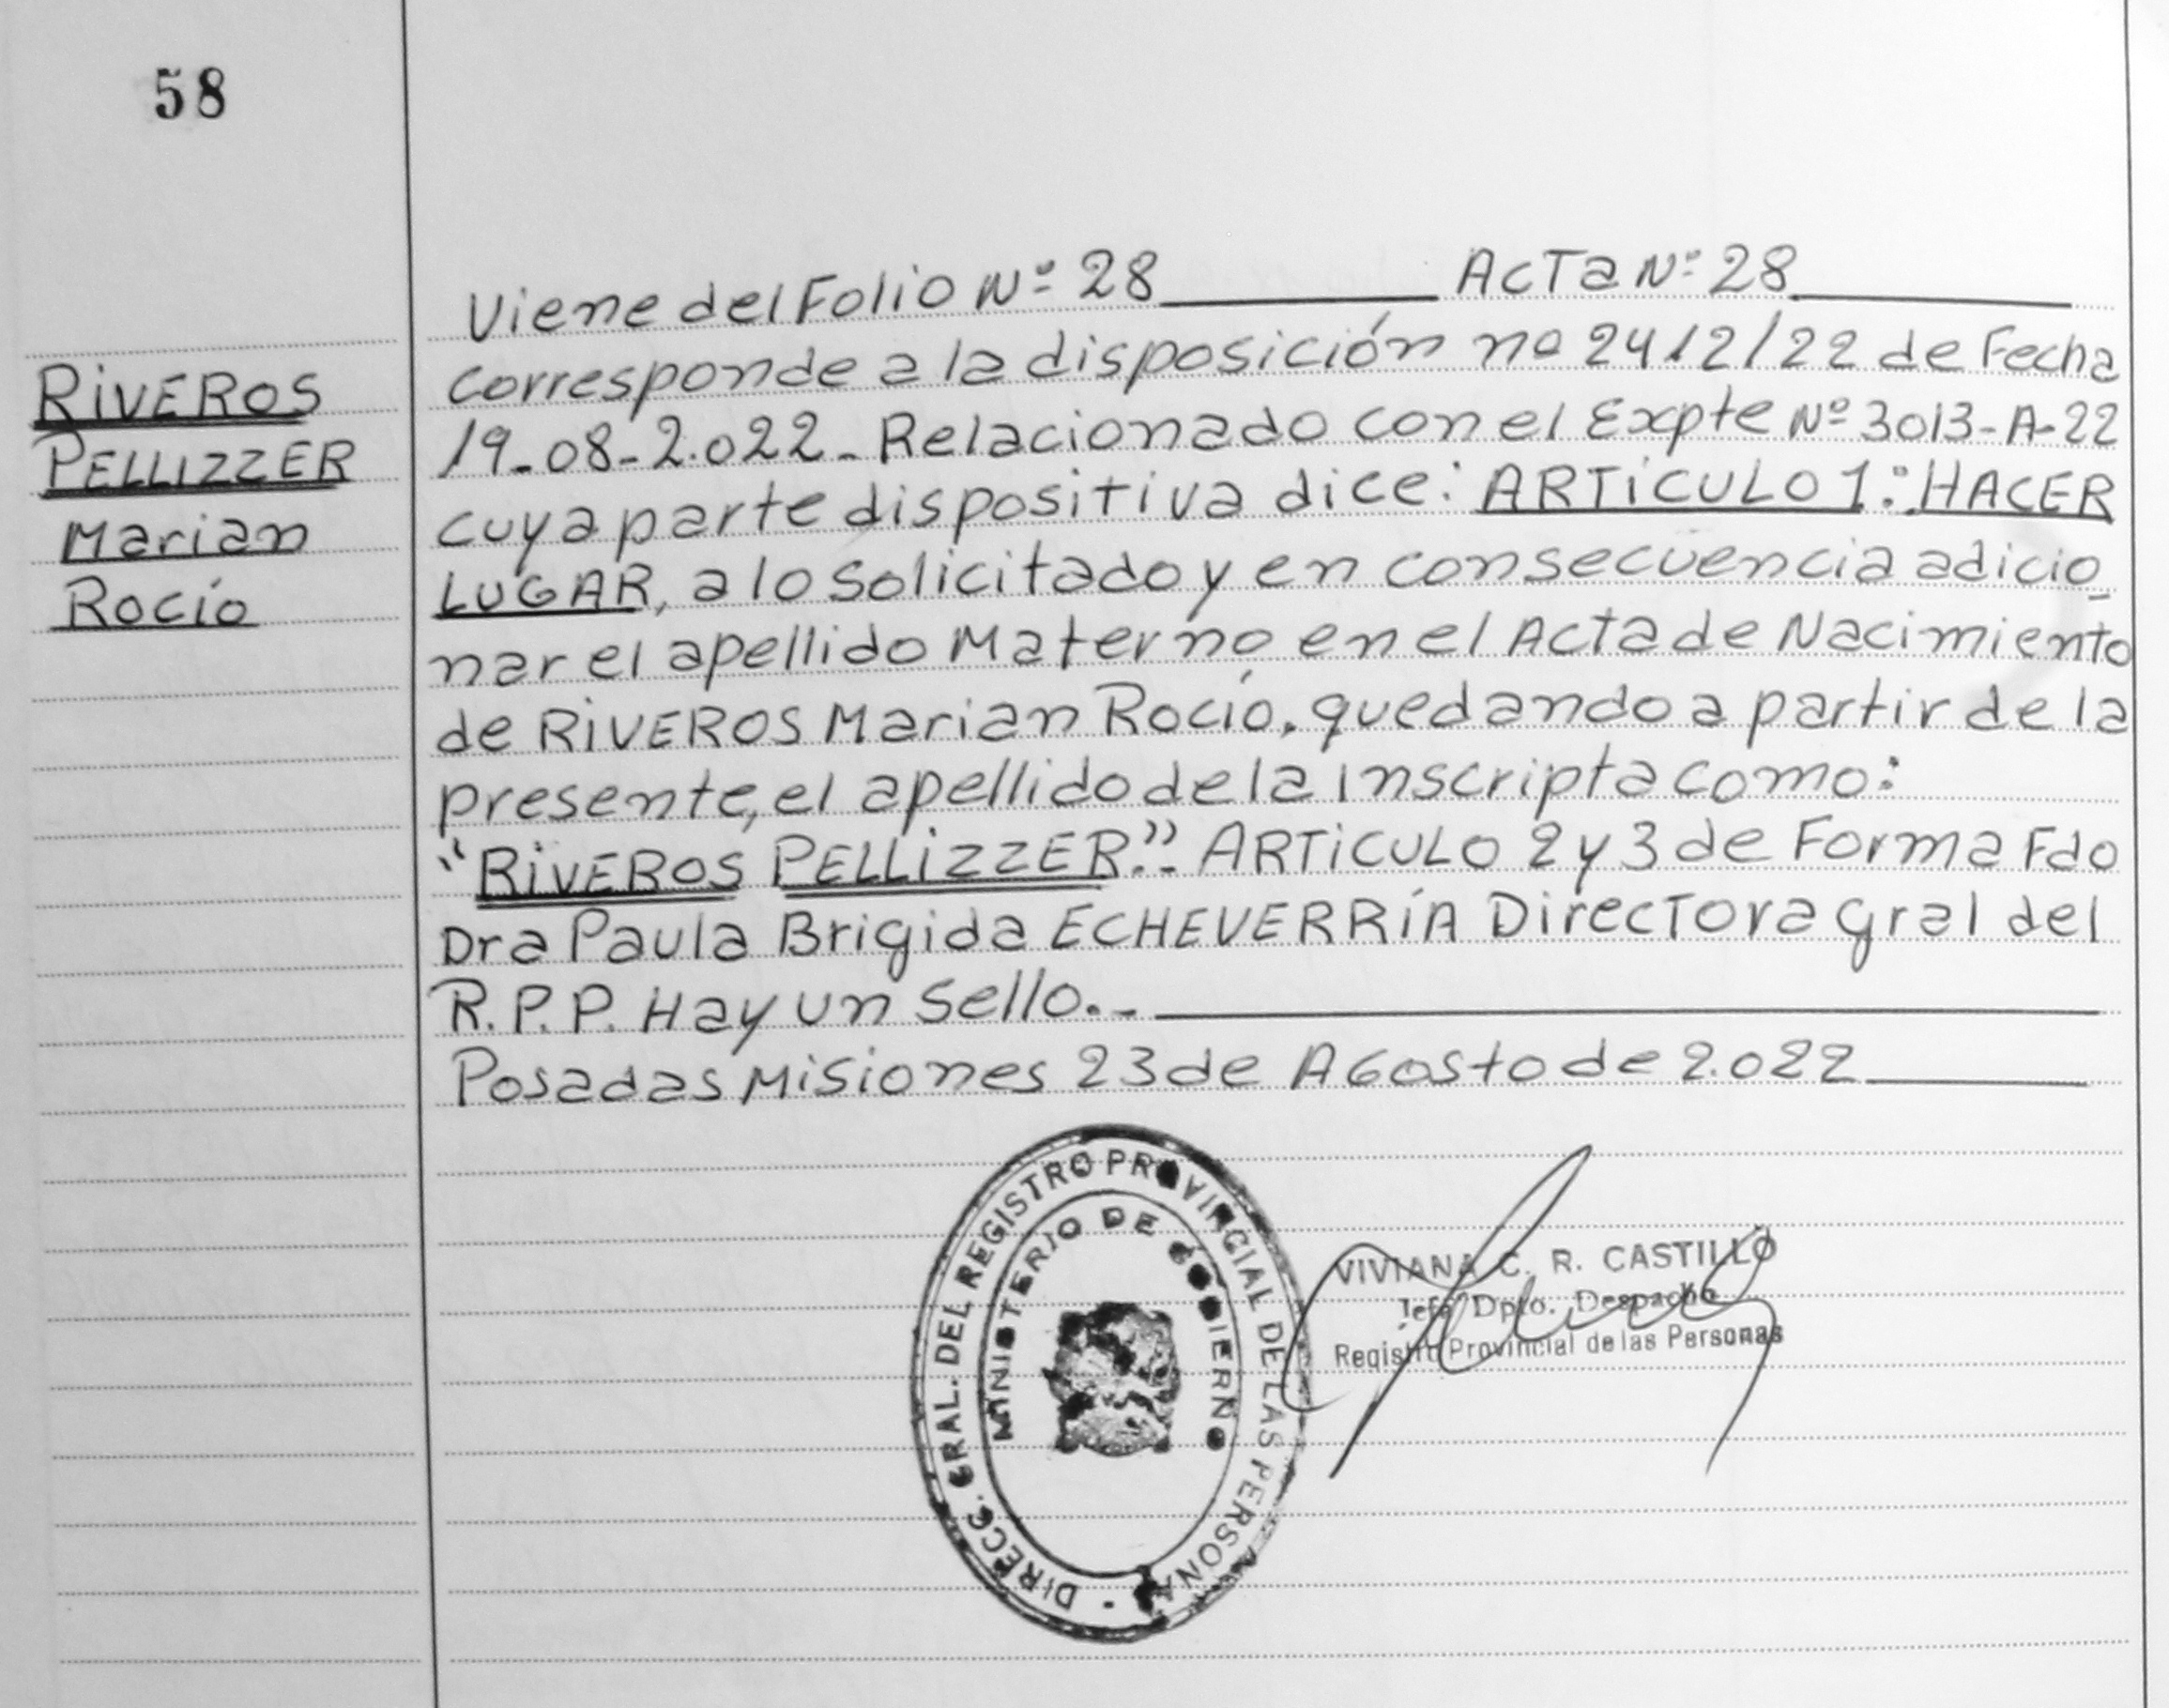 58
Viene del Folio Nº 28 ACTa Nº 28
RiVEROS
PELLIZZER
Marian
Rocío
corresponde a la disposición nº 2412/22 de Fecha
19-08-2.022_ Relacionado con el Expte Nº 3013-A-22
cuya parte dispositiva dice: ARTíCULO 1: HACER
LUGAR, a lo solicitado y en consecuencia adicio_
nar el apellido Materno en el Acta de Nacimiento
de RiVEROS Marian Rocío, quedando a partir de la
presente, el apellido de la inscripta como:
"RiVEROS PELLiZZER". ARTiCULO 2 y 3 de Forma Fdo
Dra Paula Brigida ECHEVERRíA Directora gral del
R.P.P. Hay un Sello._
Posadas Misiones 23 de AGosto de 2.022
DIRECC. GRAL. DEL REGISTRO PROVINCIAL DE LAS PERSONAS
MINISTERIO DE GOBIERNO
VIVIANA C. R. CASTILLO
Jefa Dpto. Despacho
Registro Provincial de las Personas